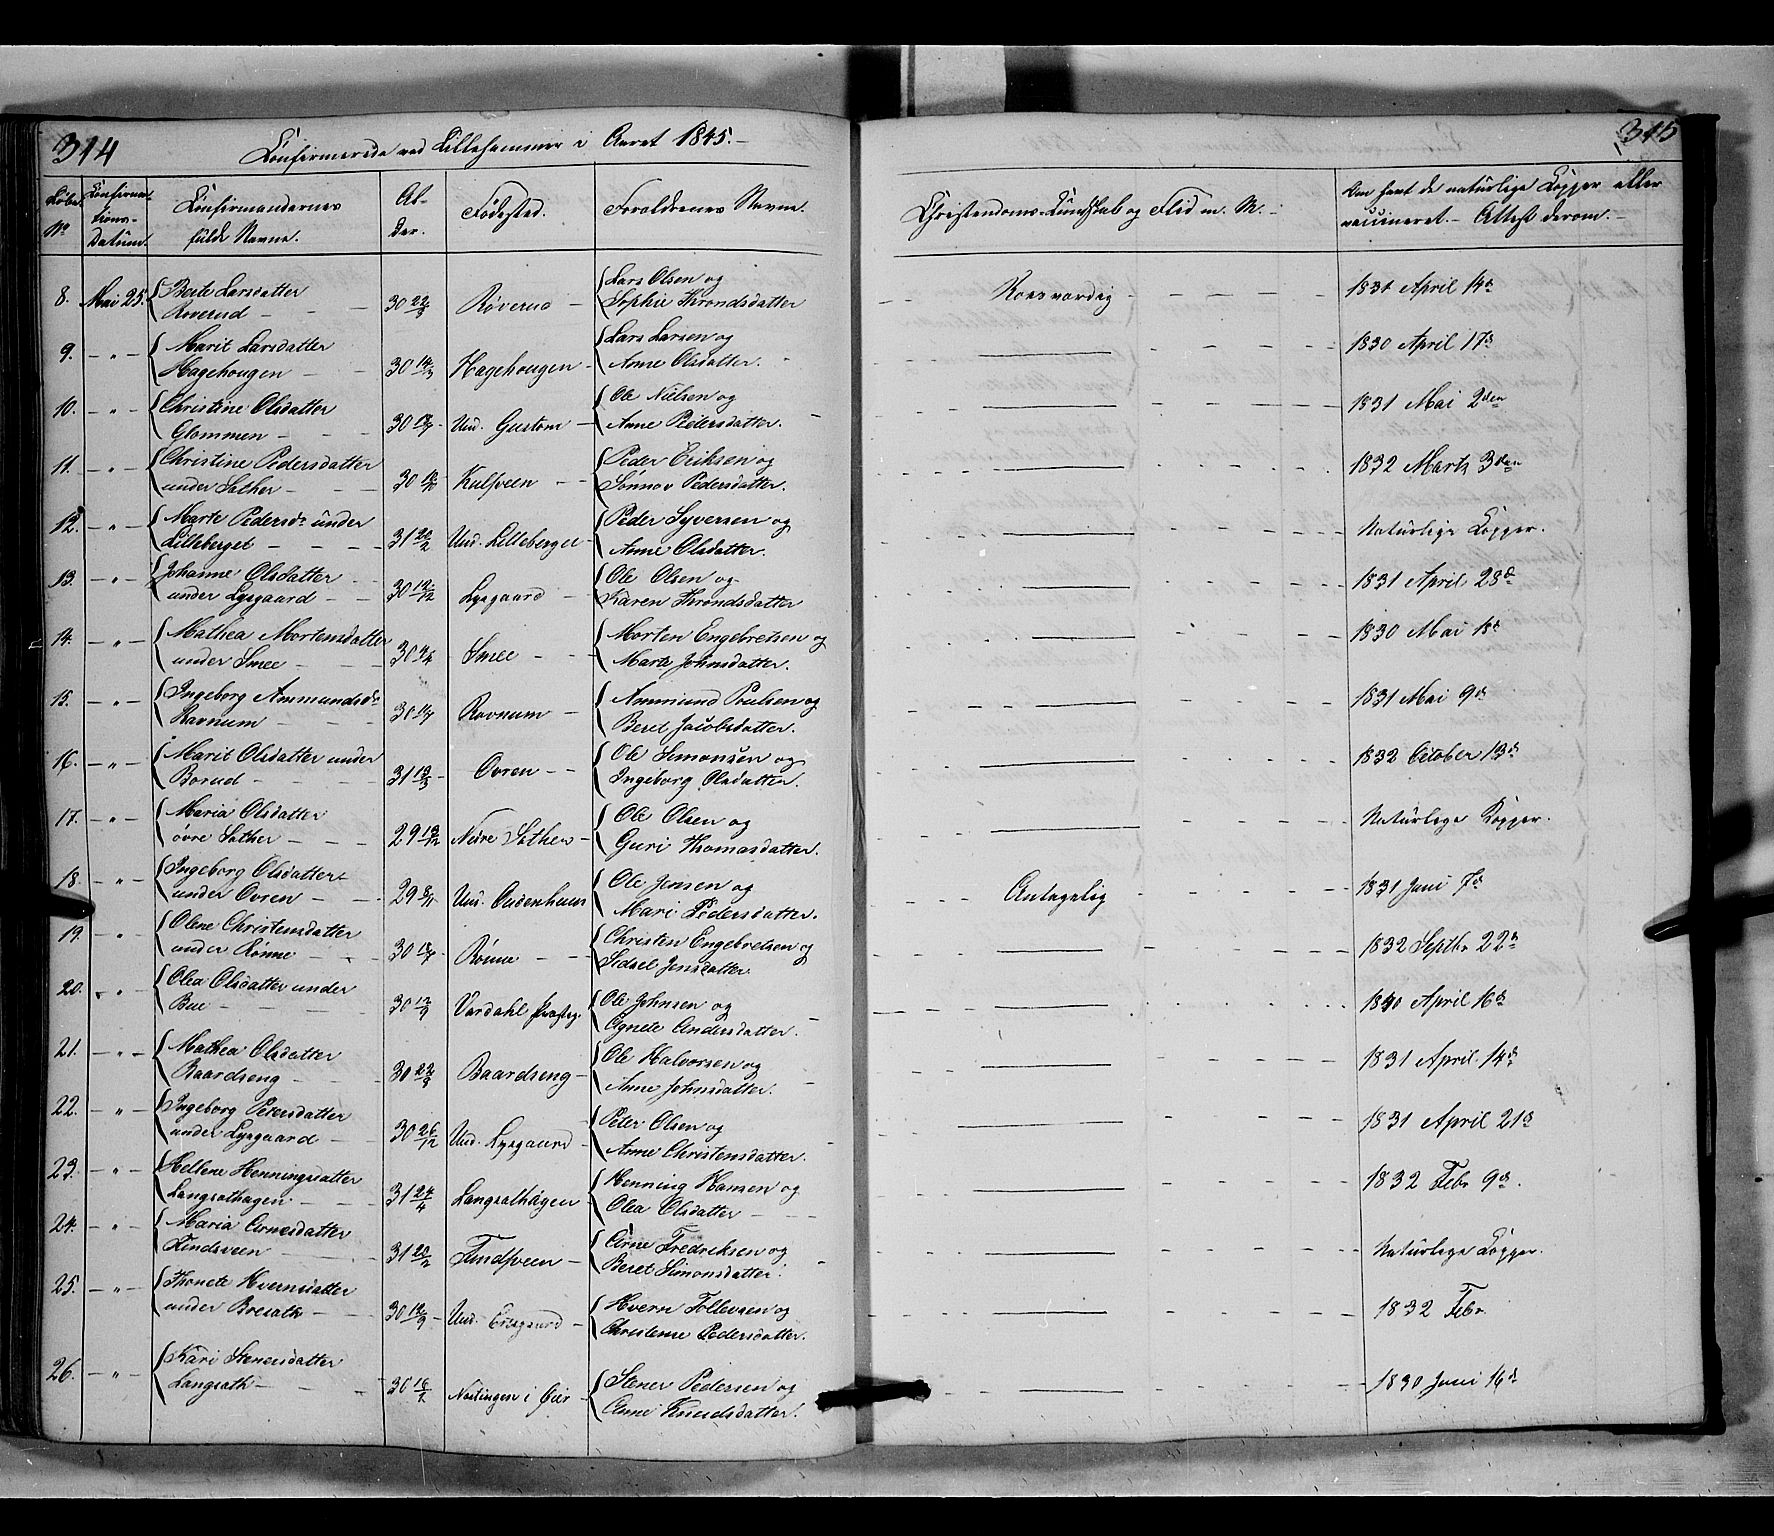 314
Confirmerede ved Lillehammer i Aaret 1845.-
315
Løbe No
Confirmations-Datum.
Confirmandernes fulde Navne.
Alder.
Fødested.
Forældrenes Navne.
Christendoms-Kundskab og Flid m. M.-
Om havt de naturlige Kopper eller vaccineret.- Attest derom.-
8. Mai 25. Berte Larsdatter Røverud - 30 22/3 Røverud - Lars Olsen og Sophie Throndsdatter - Roesværdig - 1831 April 14d
9. -"- Marit Larsdatter Hagehougen - 30 14/3 Hagehougen - Lars Larsen og Anne Olsdatter. 1830 April 17d
10. -"- Christine Olsdatter Glommen - 30 Und. Gustom - Ole Nielsen og Anne Pedersdatter. 1831 Mai 2den
11. -"- Christine Pedersdatter under Sather - 30 Kulsveen - Peder Eriksen og Sønnov Pedersdatter. 1832 Marts 3den
12. -"- Marte Pedersd: under Lilleberget - 31 20/2 Und. Lilleberget - Peder Syversen og Anne Olsdatter. Naturlige Kopper.
13. -"- Johanne Olsdatter under Lysgaard - 30 12/12 Lysgaard - Ole Olsen og Karen Throndsdatter 1831 April 28d
14. -"- Mathea Mortensdatter under Smee - 30 4/4 Smee - Morten Engebretsen og Marte Johnsdatter. 1830 Mai 1d
15. -"- Ingeborg Ammundsd: Ravnum - 30 Ravnum - Ammund Poulsen og Beret Jacobsdatter. 1831 Mai 9d
16. -"- Marit Olsdatter under Borud - 31 Ovren - Ole Simonsen og Ingeborg Olsdatter. 1832 October 13d
17. -"- Maria Olsdatter øvre Sather - 29 Nedre Sather - Ole Olsen og Guri Thomasdatter. Naturlige Kopper.
18. -"- Ingeborg Olsdatter under Ovren - 29 8/11 Und. - Ole Jensen og Mari Pedersdatter. Antagelig - 1831 Juni 7d
19. " Olene Christensdatter under Rønne - 30 18/7 Rønne - Christen Engebretsen og Sidsel Jensdatter 1832 Septbr 22d
20. " Olea Olsdatter under Bue - 30 12/9 Vardahl Præsteg. Ole Johnsen og Agnete Andersdatter. 1840 April 16d
21. -"- Mathea Olsdatter Baardseng - 30 22/9 Baardseng - Ole Halvorsen og Anne Johnsdatter. 1831 April 14d
22. -"- Ingeborg Petersdatter under Lysgaard - 30 26/12 Und. Lysgaard - Peter Olsen og Anne Christensdatter. 1831 April 21d
23. -"- Hellene Henningsdatter Langsathagen. - 31 24/4 Langsathagen - Henning Hansen og Olea Olsdatter - 1832 Febr 9d.
24. -"- Maria Arnesdatter Findsveen 31 20/2 Findsveen - Arne Fredriksen og Beret Simonsdatter. Naturlige Kopper.
25. -"- Thonete Hvernsdatter under Bresath - 30 Und. - Hvern Tollevsen og Christense Pedersdatter. 1832 Febr
26. -"- Kari Stenersdatter Langsath - 30 Nordingen i Øier - Stener Pedersen og Anne Knudsdatter. 1830 Juni 16d